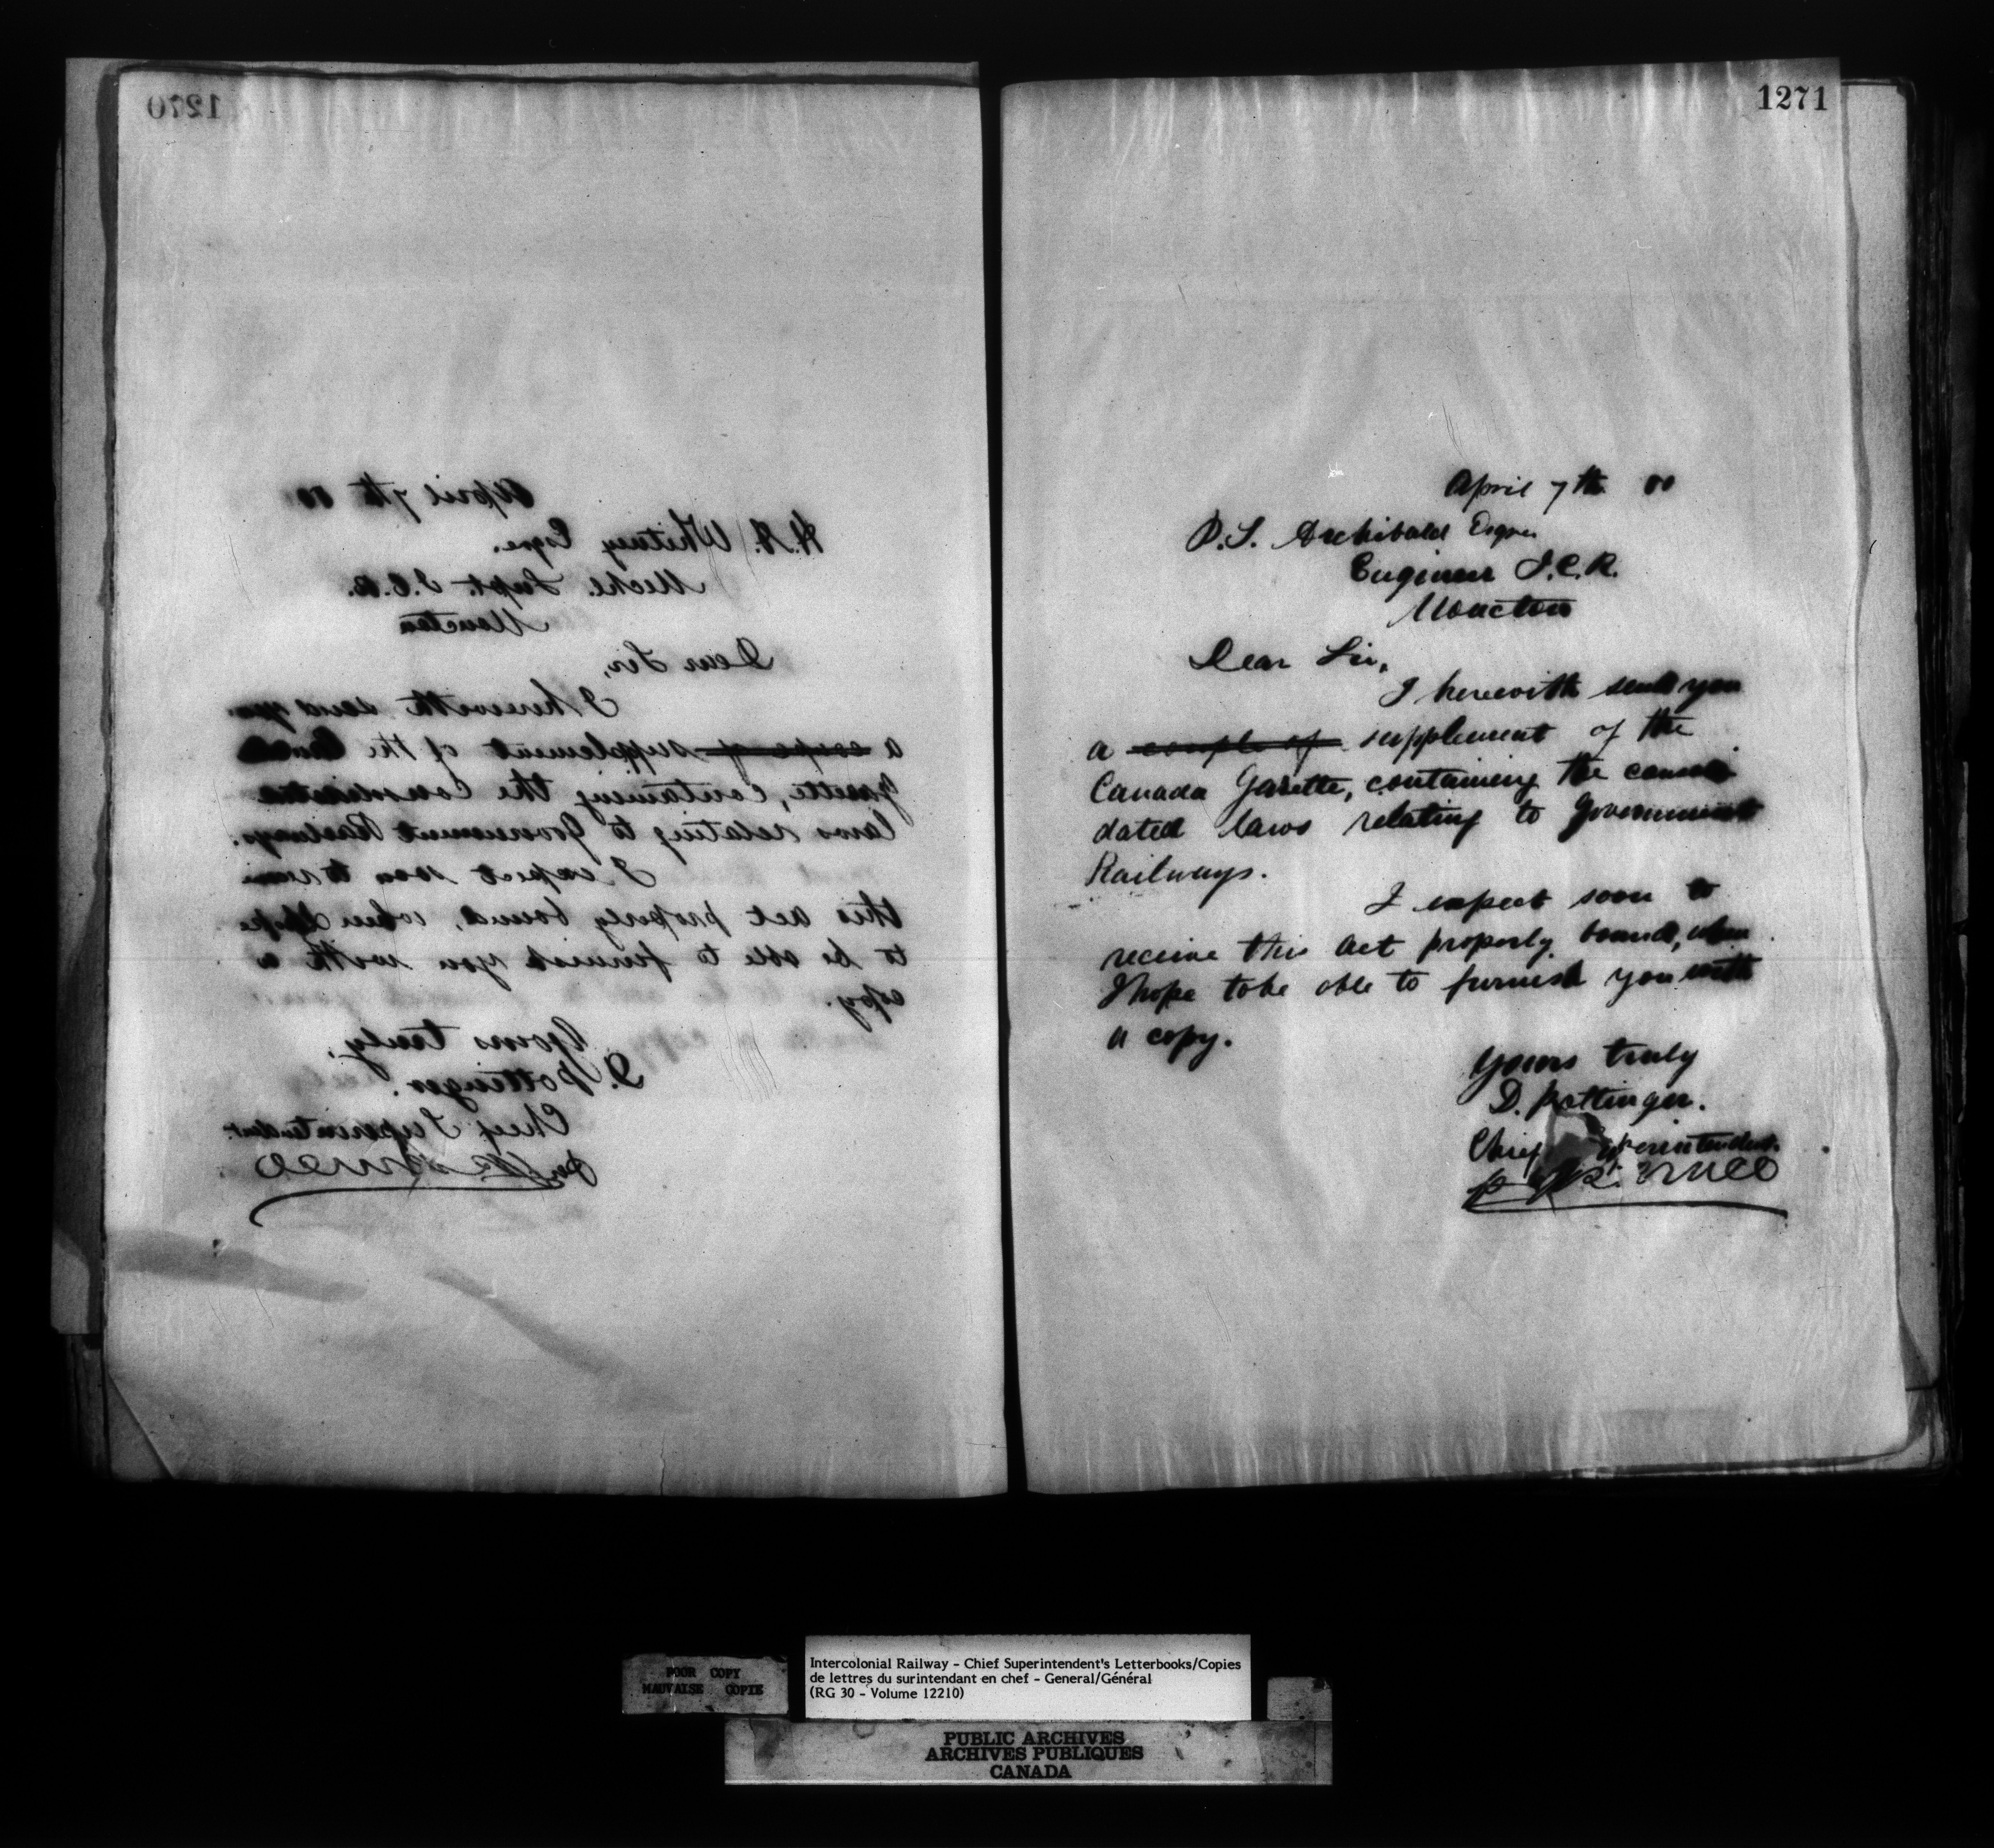 1270
April 7th 
H.A. Whitney Esqre.
Mechl. Supt. I.C.R.
Moncton
Dear Sir,
I herewith send you
a copy of supplement of the
Gazette, containing the Consolidated
laws relating to Government Railways.
I expect soon to
this act properly bound, when I hope
to be able to furnish you with a
copy.
Yours truly,
D. Pottinger.
Chief Superintendent
1271
April 7th
P.S. Archibald Esqre
Engineer I.C.R.
Moncton
Dear Sir,
I herewith send you
a couple of supplement of the
Canada Gazette, containing the consoli
dated laws relating to Government
Railways.
I expect soon to
receive this act properly bound, when
I hope to be able to furnish you with
a copy.
Yours truly
D. Pottinger.
Chief Superintendent.
POOR COPY
MAUVAISE COPIE
Intercolonial Railway - Chief Superintendent's Letterbooks/Copies
de lettres du surintendant en chef - General/Général
(RG 30 - Volume 12210)
PUBLIC ARCHIVES
ARCHIVES PUBLIQUES
CANADA